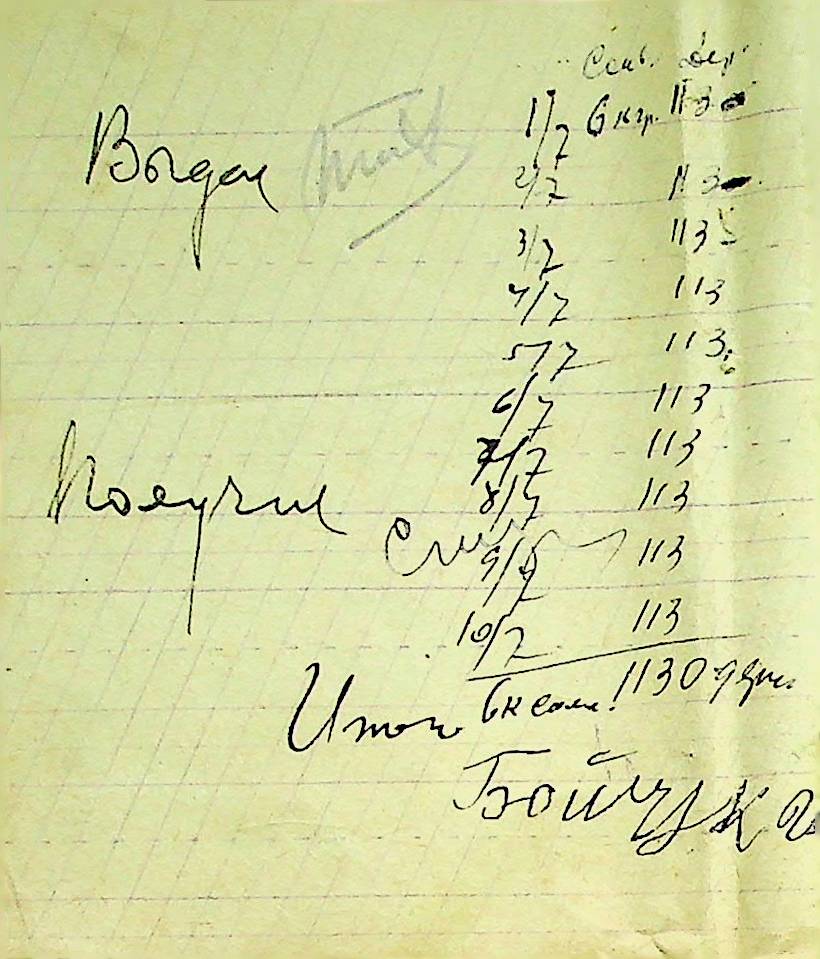 Выдал
Получил
1/7 6 кгр. 113
2/7 113
3/7 113
4/7 113
5/7 113
6/7 113
7/7 113
8/7 113
9/7 113
10/7 113
Итого 6 к соли 1130
Бойчук